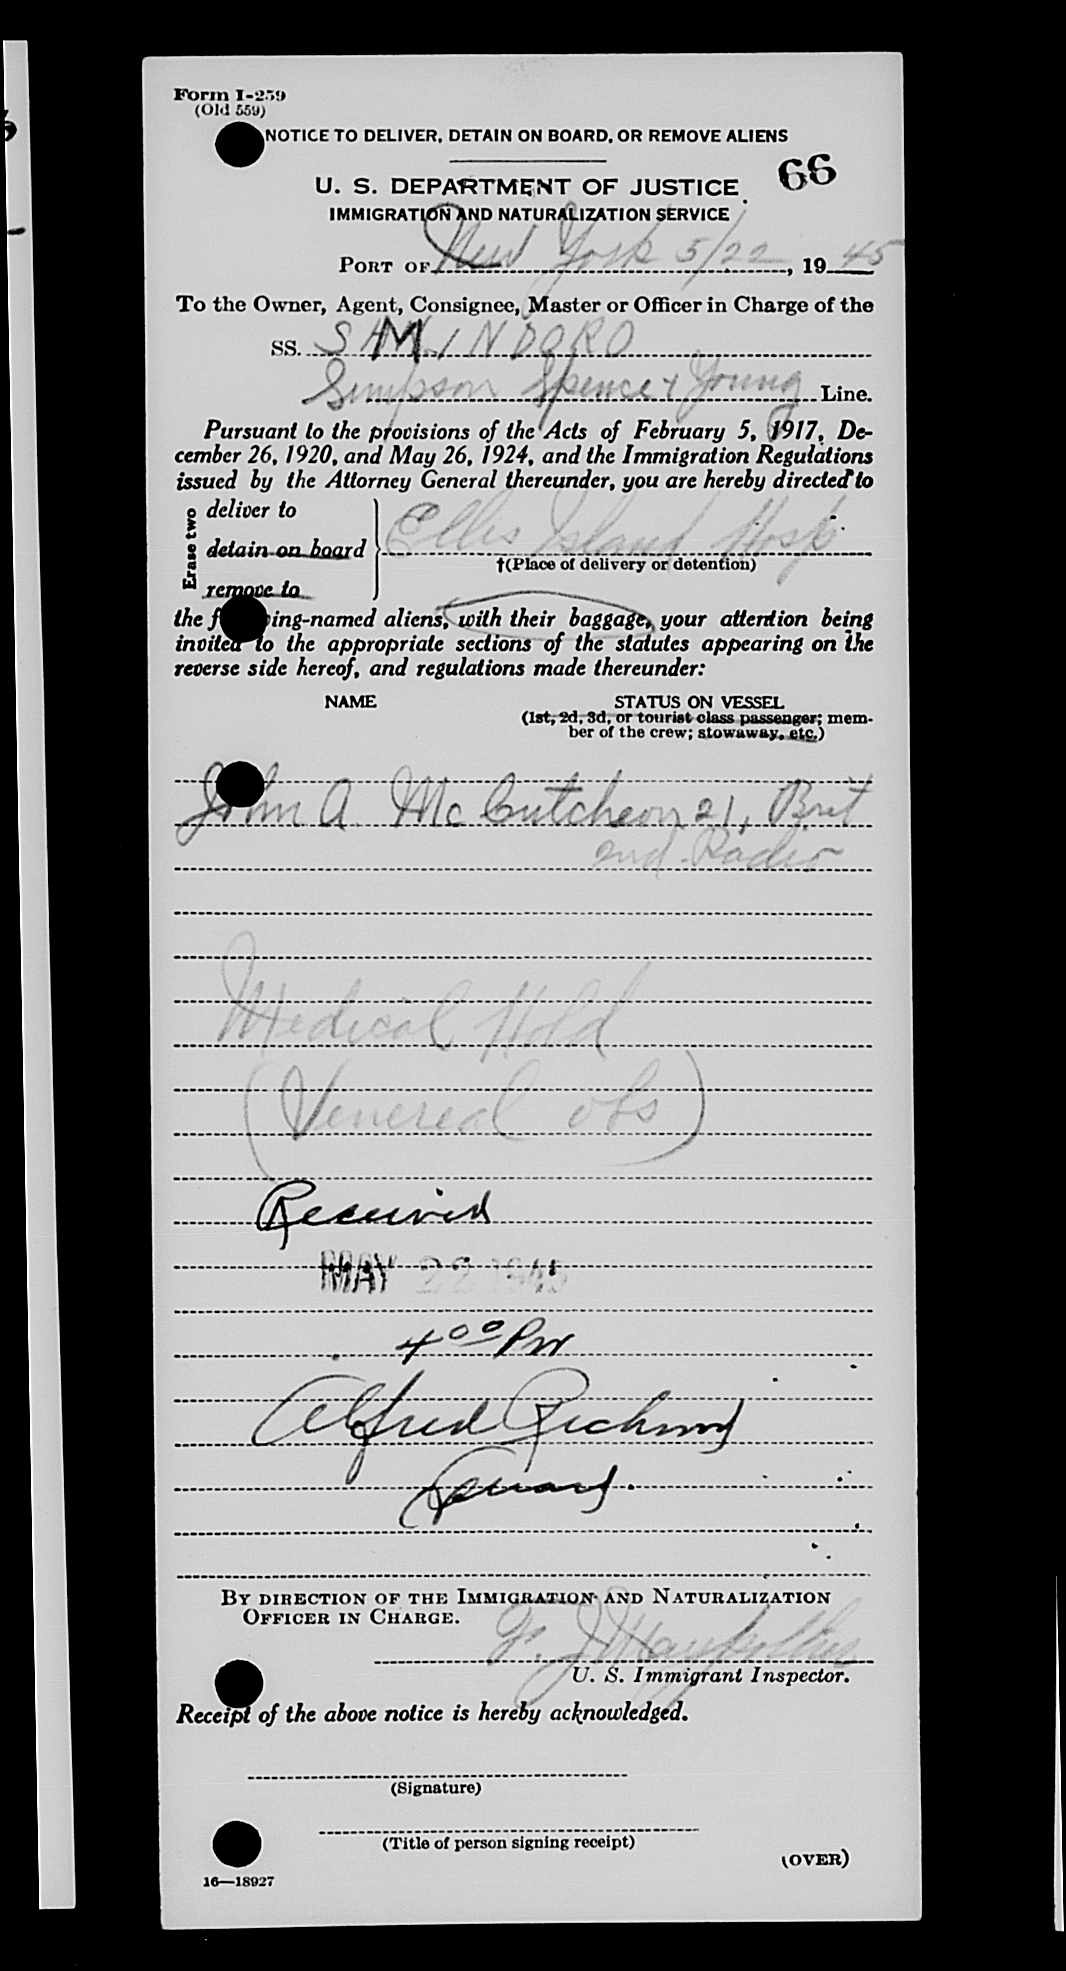 Form I-259
(Old 559)
NOTICE TO DELIVER, DETAIN ON BOARD, OR REMOVE ALIENS
66
U. S. DEPARTMENT OF JUSTICE
IMMIGRATION AND NATURALIZATION SERVICE
PORT OF New York 5/22, 19 45
To the Owner, Agent, Consignee, Master or Officer in Charge of the
SS. SAMINDORO
Simpson Spence & Young Line.
Pursuant to the provisions of the Acts of February 5, 1917, De-
cember 26, 1920, and May 26, 1924, and the Immigration Regulations
issued by the Attorney General thereunder, you are hereby directed to
Erase two
deliver to
detain on board
remove to
Ellis Island Hosp
†(Place of delivery or detention)
the f ing-named aliens, with their baggage, your attention being
invited to the appropriate sections of the statutes appearing on the
reverse side hereof, and regulations made thereunder:
NAME STATUS ON VESSEL
(1st, 2d, 3d, or tourist class passenger; mem-
ber of the crew; stowaway, etc.)
John A. McCutcheon 21, Brit
2nd Radio
Medical Hold
(Venereal obs)
Received
MAY 22 1945
4 00 PM
Alfred Richmond
Guard.
BY DIRECTION OF THE IMMIGRATION AND NATURALIZATION
OFFICER IN CHARGE.
U. S. Immigrant Inspector.
Receipt of the above notice is hereby acknowledged.
(Signature)
(Title of person signing receipt)
(OVER)
16—18927